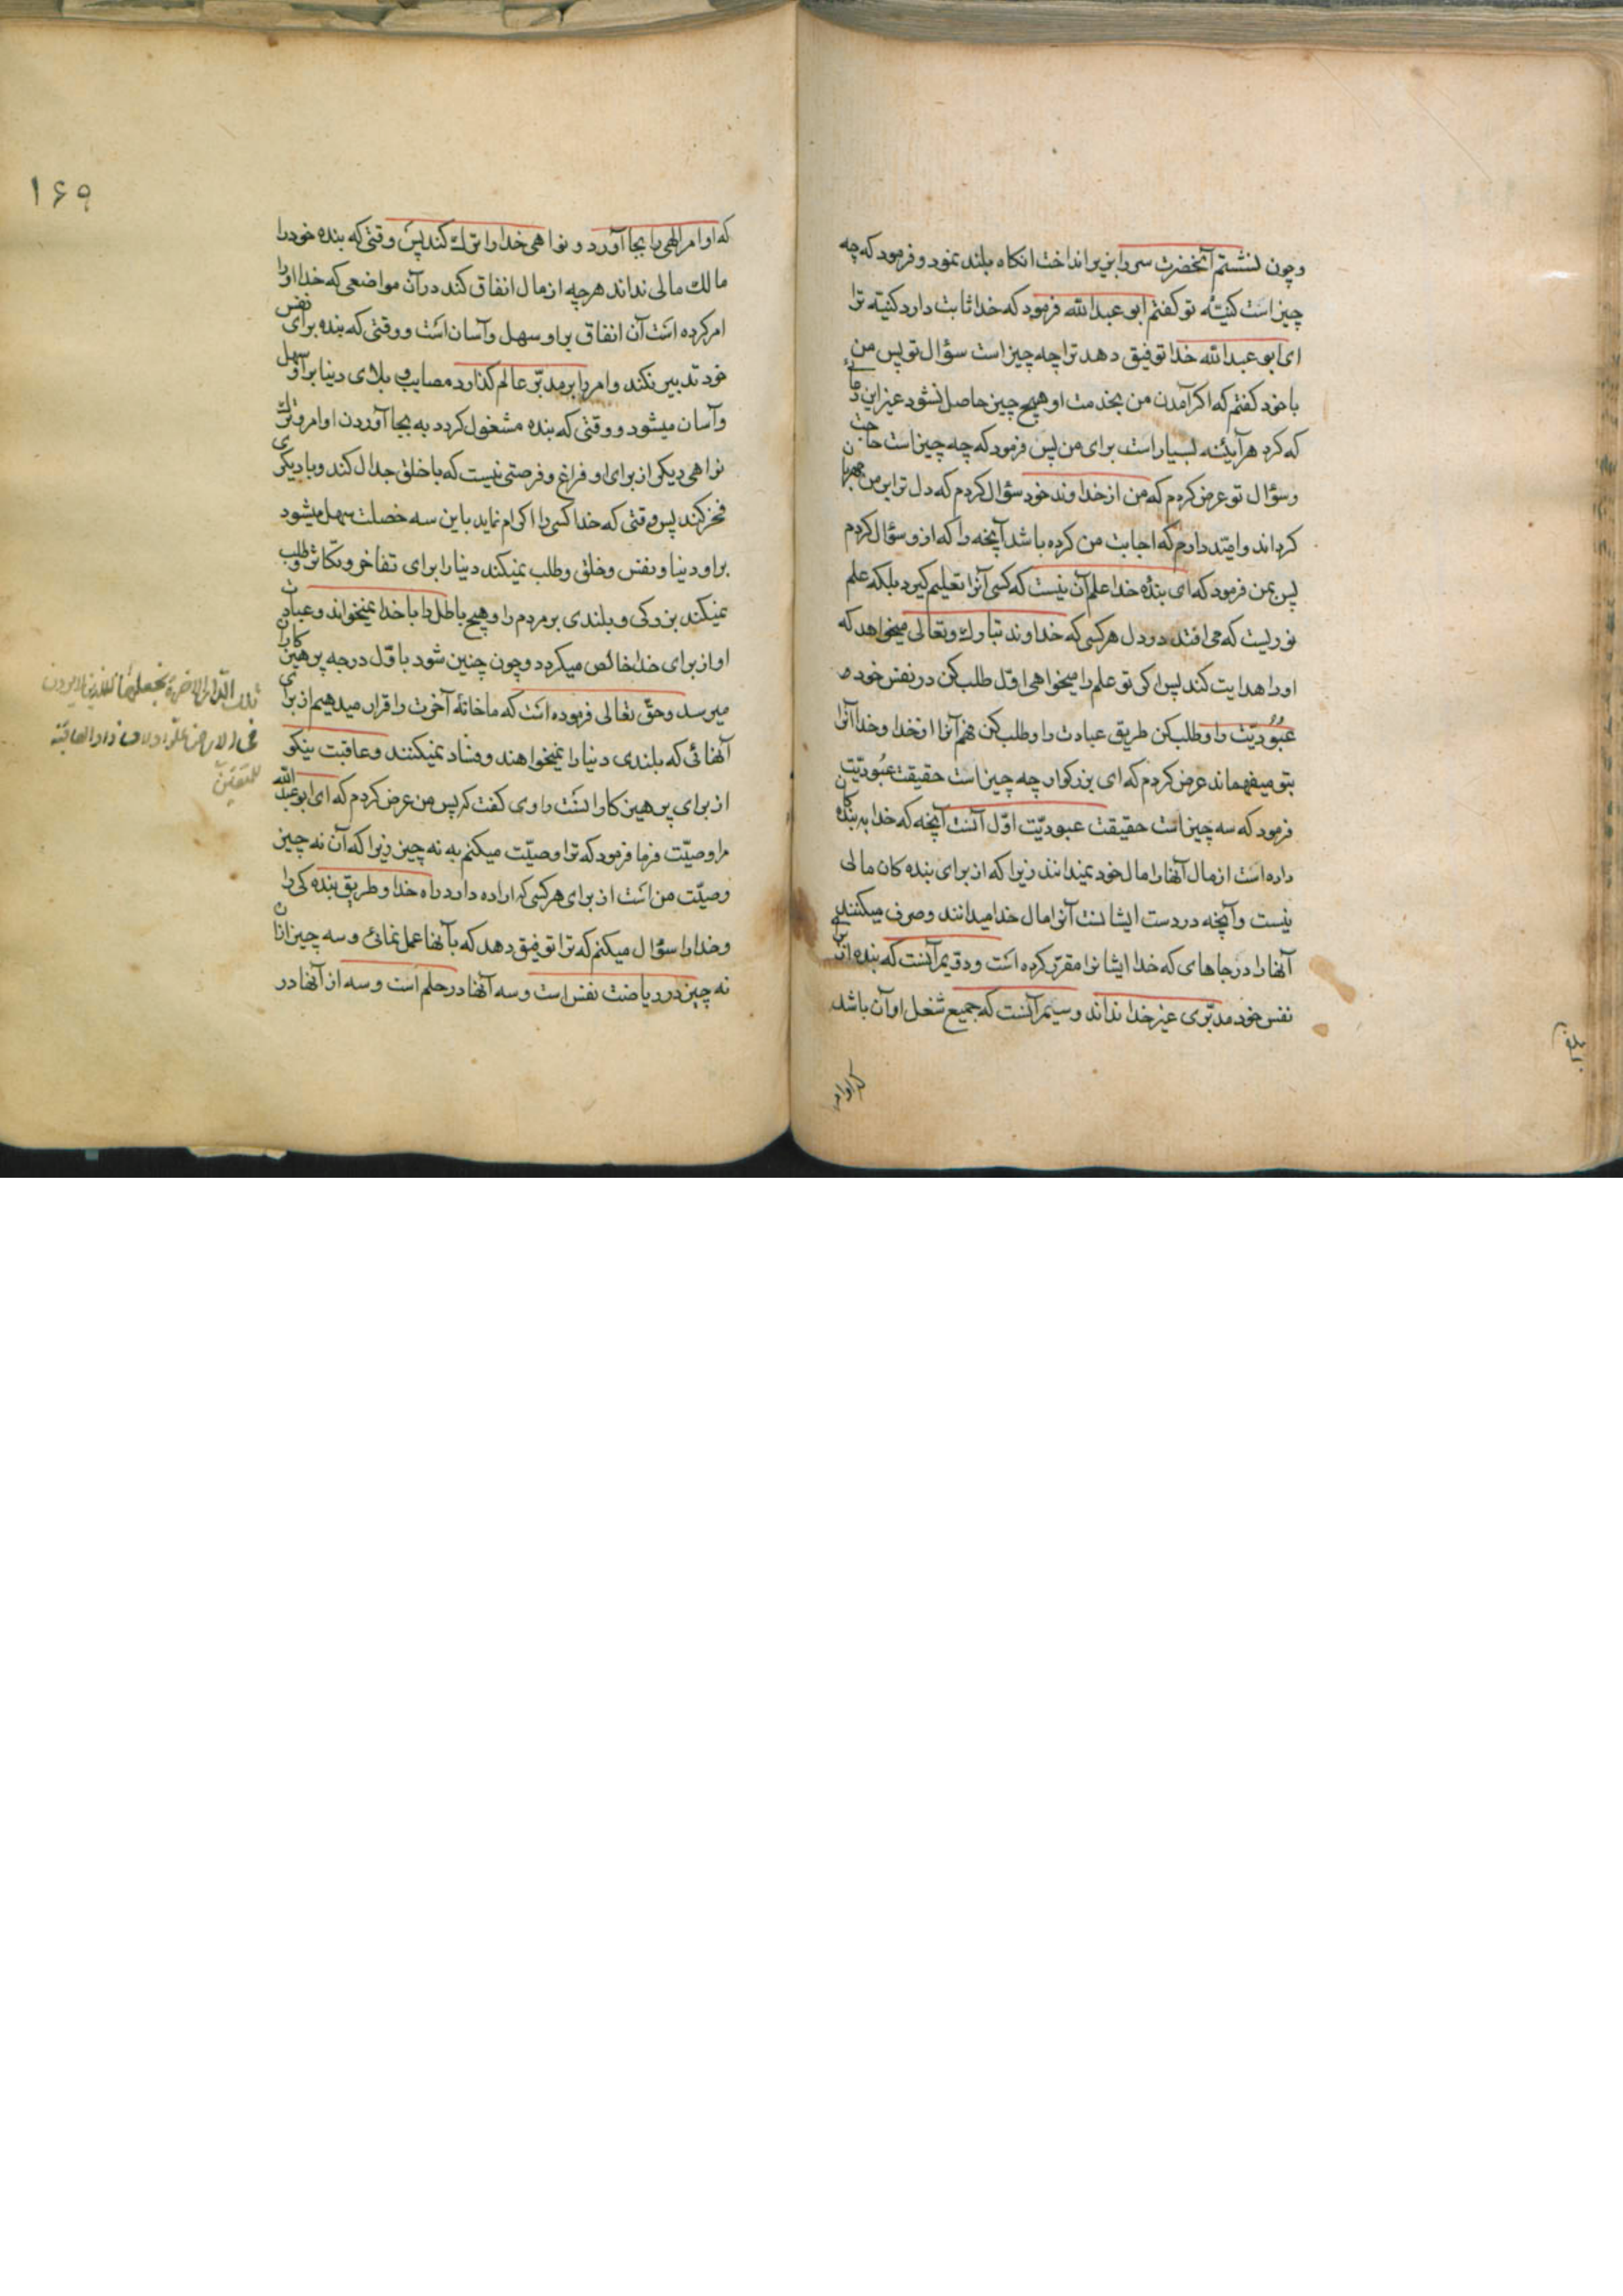 وچون نشستم آنحضرت سر را بزیر انداخت انکاه بلند نمود و فرمود که چه
چیز است کنیتهٔ تو کفتم ابو عبدالله فرمود که خدا ثابت دارد کنیته ترا
ای ابو عبدالله خدا توفیق دهد ترا چه چیز است سؤال تو پس من
با خود کفتم که اکر آمدن من بخدمت او هیچ چیز حاصل نشود غیر این دعائی
که کرد هر آینئه بسیار است برای من پس فرمود که چه چیز است حاجت
و سؤال تو عرض کردم که من از خداوند خود سؤال کردم که دل ترا بر من مهربان
کرداند و امیّد دارم که اجابت من کرده باشد آنچه را که از و سؤال کردم
پس بمن فرمود که ای بندهٔ خدا علم آن نیست که کسی آنرا تعلیم کیرد بلکه علم
نوریست که می افتد در دل هر کسی که خداوند تبارک و تعالی میخواهد که
او را هدایت کند پس اکر تو علم را میخواهی اوّل طلب کن در نفس خود
عبُودیّت را و طلب کن طریق عبادت را و طلب کن فهم آنرا از خدا و خدا آنرا
بتو میفهماند عرض کردم که ای بزرکوار چه چیز است حقیقت عبُودیّت
فرمود که سه چیز است حقیقت عبودیّت اوّل آنست آنچه که خدا به بنده کان
داده است از مال آنها را مال خود نمیدانند زیرا که از برای بنده کان مالی
نیست و آنچه در دست ایشانست آنرا مال خدا میدانند و صرف میکنند
آنها را در جاهای که خدا ایشانرا مقرّر کرده است و دویم آنست که بنده از برای
نفس خود مدبّری غیر خدا نداند و سیم آنست که جمیع شغل او آن باشد
که اوامر
۱۶۹
که اوامر الهی را بجا آورد و نواهی خدا را ترک کند پس وقتی که بنده خود را
مالک مالی نداند هر چه از مال انفاق کند در آن مواضعی که خدا او را
امر کرده است آن انفاق بر او سهل و آسان است و وقتی که بنده برای نفس
خود تدبیر نکند و امر را بر مدبّر عالم کذارد مصایب و بلای دنیا بر او سهل
و آسان میشود و وقتی که بنده مشغول کردد به بجا آوردن اوامر و ترک
نواهی دیکر از برای او فراغ و فرصتی نیست که با خلق جدال کند و با دیکری
فخر کند پس وقتی که خدا کسی را اکرام نماید باین سه خصلت سهل میشود
بر او دنیا و نفس و خلق و طلب نمیکند دنیا را برای تفاخر و تکاثر و طلب
نمیکند بزرکی و بلندی بر مردم را و هیچ باطل را با خدا نمیخواند و عبادت
او از برای خدا خالص میکردد و چون چنین شود باوّل درجه پرهیز کاران
میرسد و حقّ تعالی فرموده است که ما خانهٔ آخرت را قرار میدهیم از برای
آنهائی که بلندی دنیا را نمیخواهند و فساد نمیکنند و عاقبت نیکو
از برای پرهیز کارانست راوی کفت که پس من عرض کردم که ای ابو عبدالله
مرا وصیّت فرما فرمود که ترا وصیّت میکنم به نه چیز زیرا که آن نه چیز
وصیّت من است از برای هر کسی که اراده دارد راه خدا و طریق بنده کی را
و خدا را سؤال میکنم که ترا توفیق دهد که بآنها عمل نمائی و سه چیز از آن
نه چیز در ریاضت نفس است و سه آنها در حلم است و سه از آنها در
تلک الدّار الاخرة نجعلها للذین لایریدون
فی الارض علوّا ولا فسادا والعاقبة
للمتقین